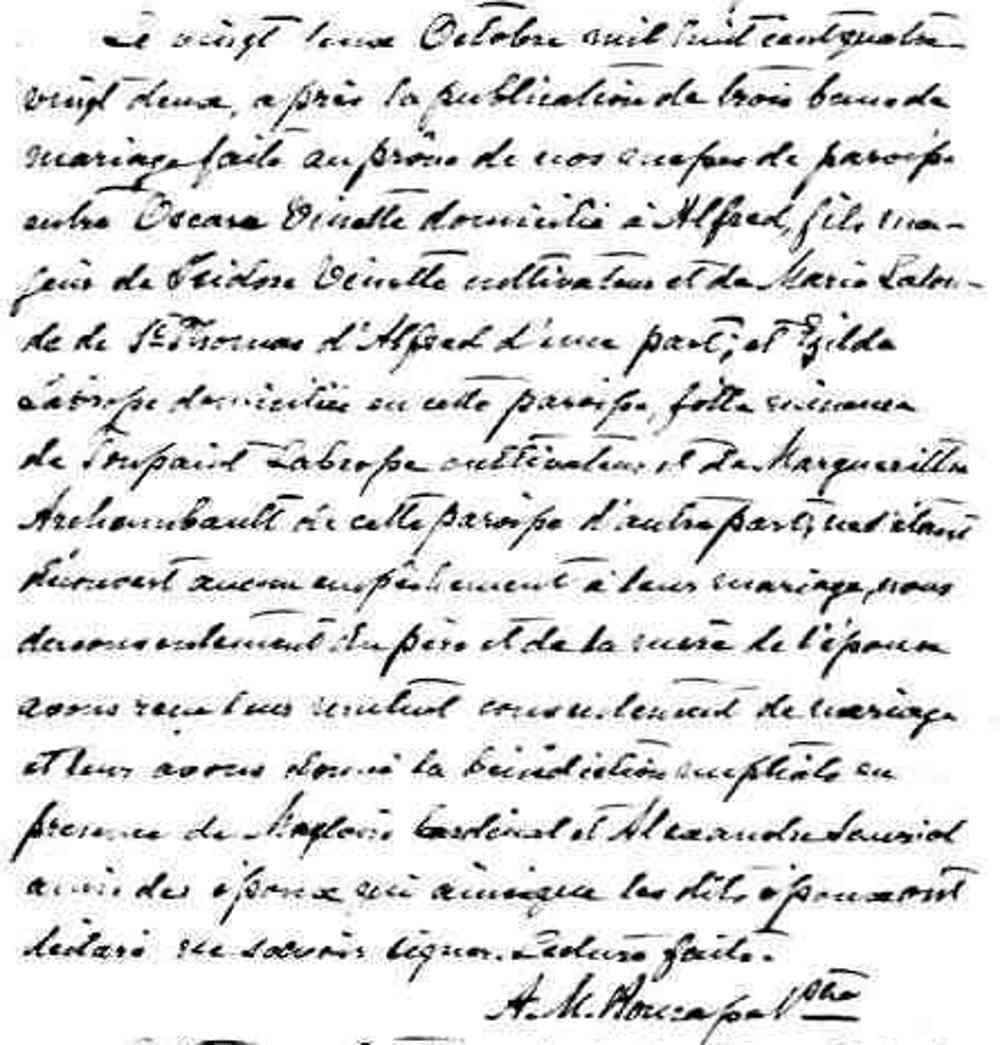 Le vingt deux Octobre mil huit cent quatre
vingt deux, après la publication de trois bans de
mariage faite au prône de nos messes de paroisse
entre Oscare Vinette domicilié à Alfred, fils ma-
jeur de Isidore Vinette cultivateur et de Marie Lalon-
de de St Thomas d'Alfred d'une part; et Exilda
Labrosse domiciliée en cette paroisse, fille mineure
de Toussaint Labrosse cultivateur et de Margueritte
Archambault de cette paroisse d'autre part, ne s'étant
découvert aucun empêchement à leur mariage, nous
du consentement du père et de la mère de l'épouse
avons reçu leur mutuel consentement de mariage
et leur avons donné la bénédiction nuptiale en
presence de Magloire Cardinal et Alexandre Sauriol
amis des époux qui ainsi que les dits époux ont
déclaré ne savoir signer. Lecture faite.
A. M. Ptre